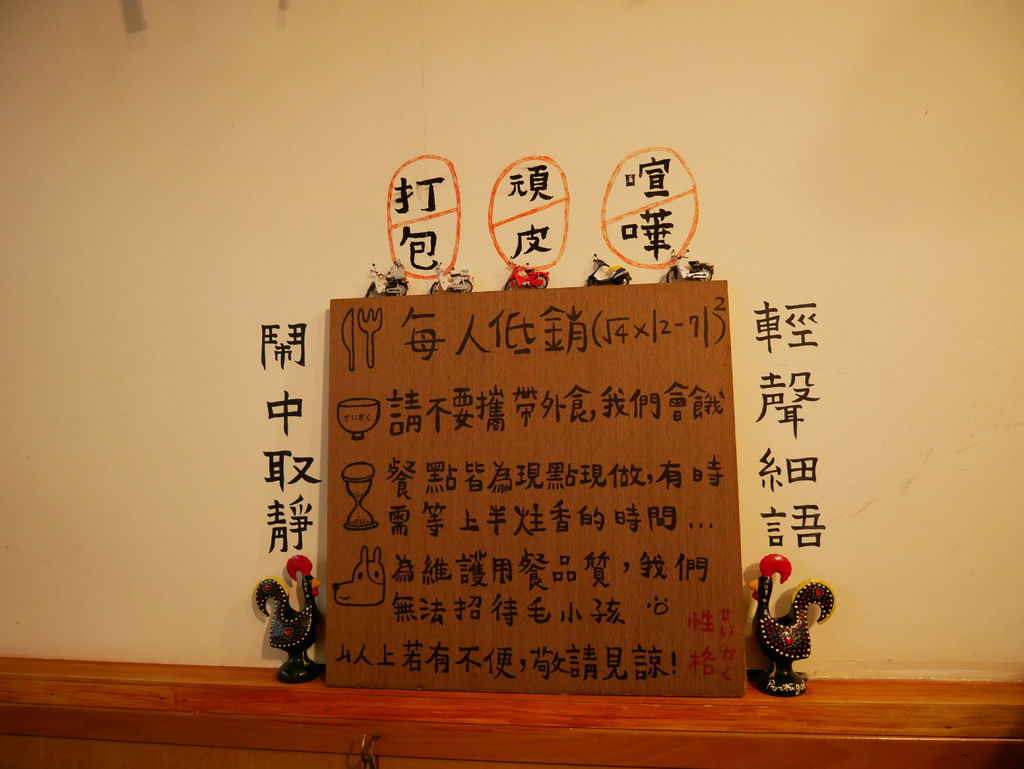 打包
頑皮
喧嘩
輕聲細語
鬧中取靜
每人低銷(√4×|2-7|)²
せいかく
請不要攜帶外食,我們會餓
餐點皆為現點現做,有時
需等上半炷香的時間...
為維護用餐品質,我們
無法招待毛小孩
以上若有不便,敬請見諒!
性格
せいかく
Portugal